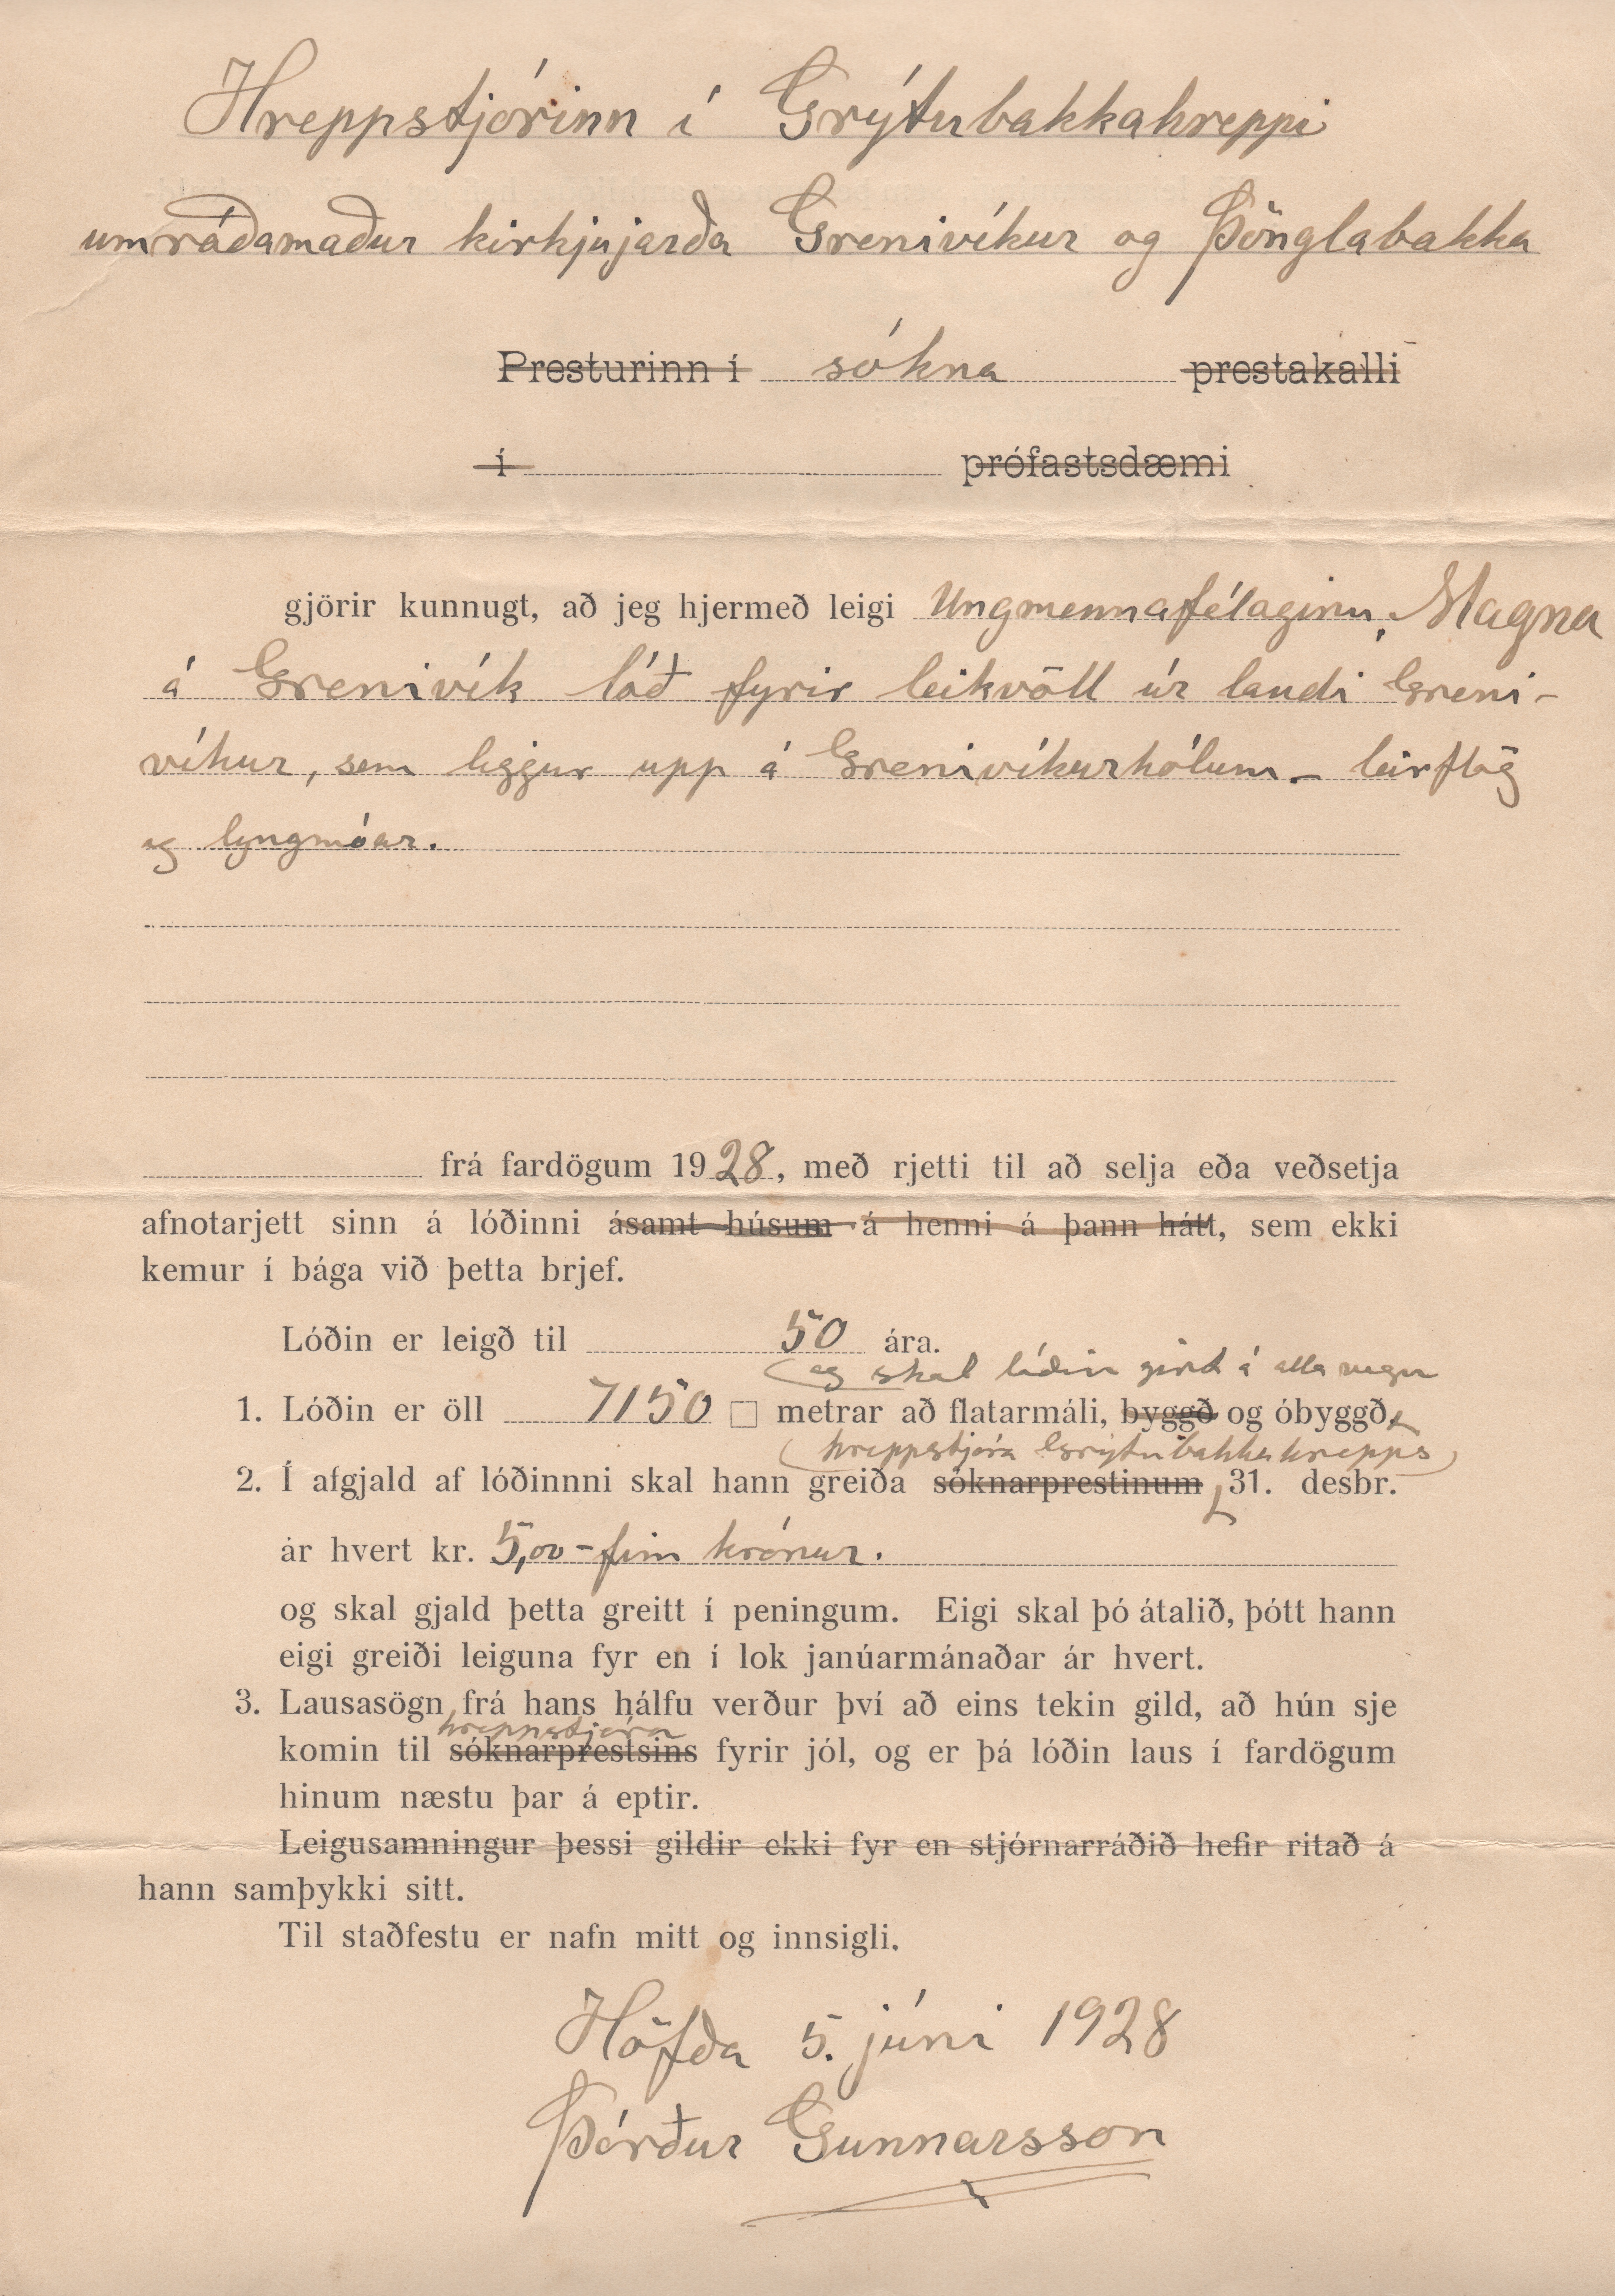 Hreppstjórinn í Grýtubakkahreppi
umráðamaður kirkjujarða Grenivíkur og Þönglabakka
Presturinn í sókna prestakalli
í prófastsdæmi
gjörir kunnugt, að jeg hjermeð leigi Ungmennafélaginu, Magna
á Grenivík lóð fyrir leikvöll úr landi Greni-
víkur, sem liggur upp á Grenivíkurhólum - leirflög
og lyngmóar.
frá fardögum 1928, með rjetti til að selja eða veðsetja
afnotarjett sinn á lóðinni ásamt húsum á henni á þann hátt, sem ekki
kemur í bága við þetta brjef.
Lóðin er leigð til 50 ára.
og skal lóðin girt á alla vegu
1. Lóðin er öll 7150 □ metrar að flatarmáli, byggð og óbyggð
hreppstjóra Grýtubakkahrepps
2. Í afgjald af lóðinnni skal hann greiða sóknarprestinum 31. desbr.
ár hvert kr. 5,00 - fim krónur.
og skal gjald þetta greitt í peningum. Eigi skal þó átalið, þótt hann
eigi greiði leiguna fyr en í lok janúarmánaðar ár hvert.
3. Lausasögn frá hans hálfu verður því að eins tekin gild, að hún sje
hreppstjóra
komin til sóknarprestsins fyrir jól, og er þá lóðin laus í fardögum
hinum næstu þar á eptir.
Leigusamningur þessi gildir ekki fyr en stjórnarráðið hefir ritað á
hann samþykki sitt.
Til staðfestu er nafn mitt og innsigli.
Höfða 5. júni 1928
Þórður Gunnarsson